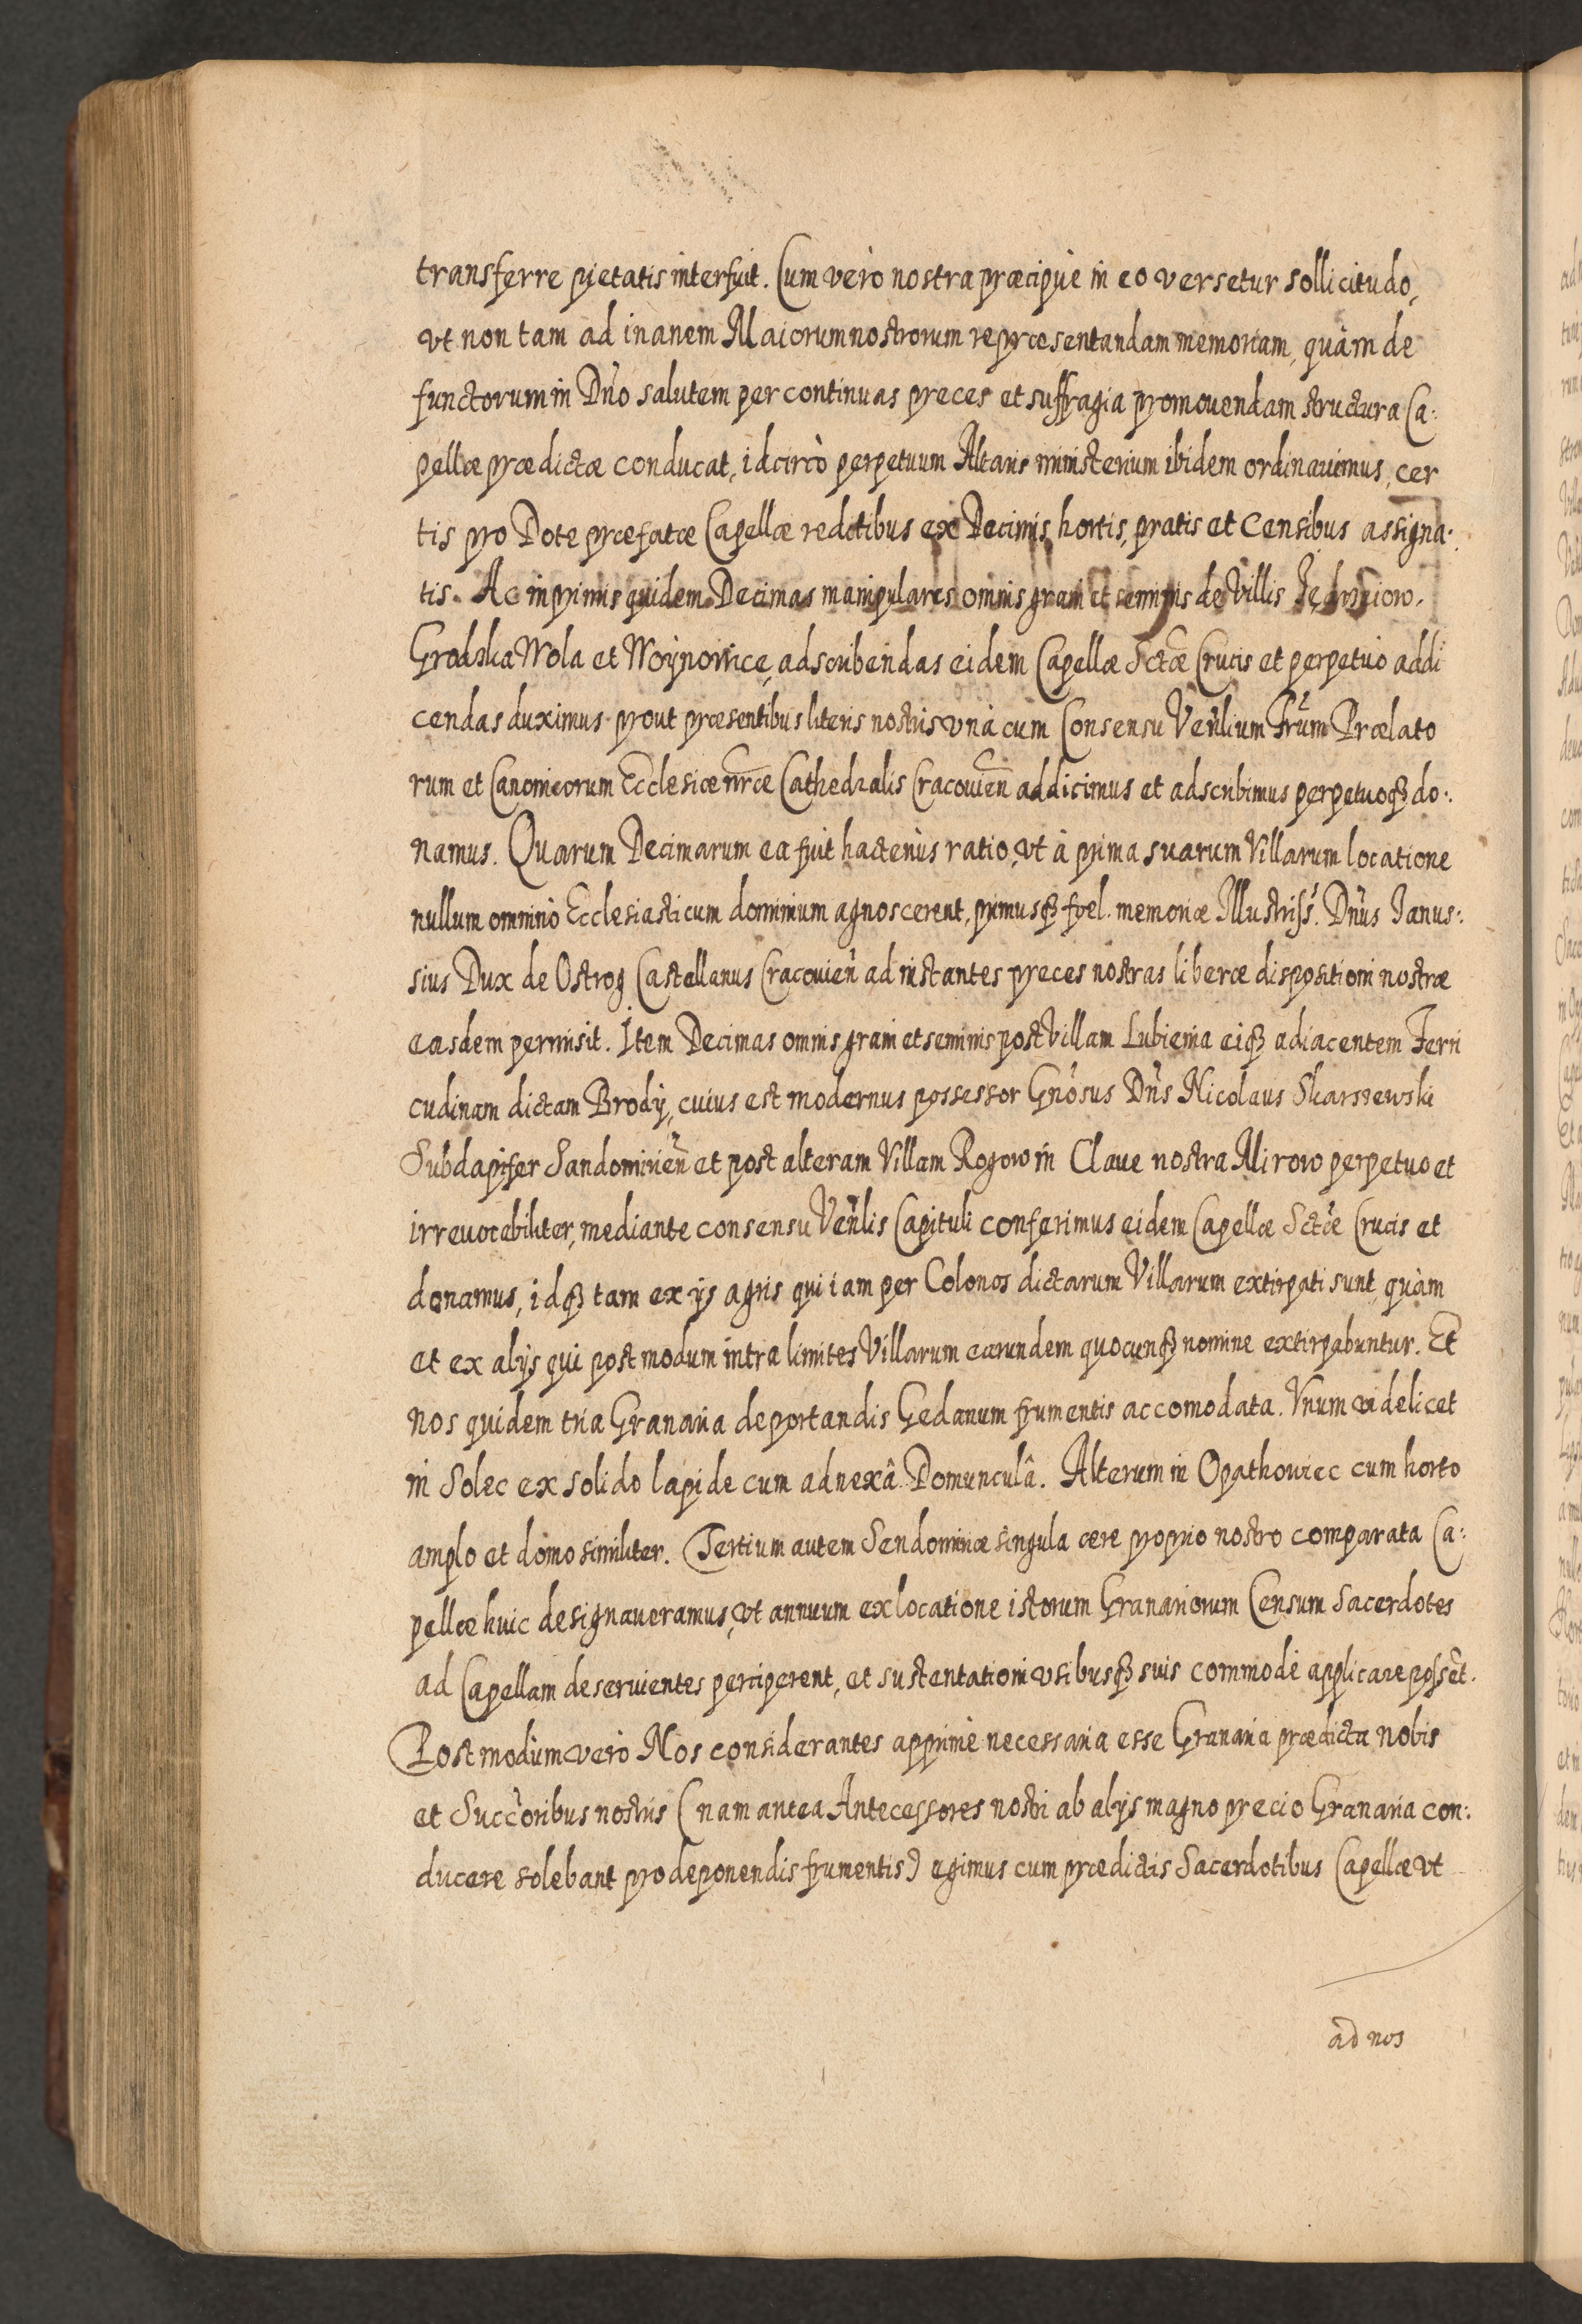 transferre pietatis interfuit. Cum verò nostra præcipùe in eo versetur sollicitudo,
vt non tam ad inanem Maiorum nostrorum repræsentandam memoriam, quàm de
functorum in Dńo salutem per continuas preces et suffragia promouendam structura Ca:
pellæ prædictæ conducat, idcircò perpetuum Altaris ministerium ibidem ordinauimus, cer
tis pro Dote præfatæ Capellæ reditibus ex Decimis, hortis, pratis et Censibus assigna:
tis. Ac inprimis quidem Decimas manipulares omnis grani et seminis de Villis Jędrzeiow,
Grodzka Wola et Woÿnowice, adscribendas eidem Capellæ Sctæ Crucis et perpetuò addi
cendas duximus prout præsentibus literis nostris vnà cum Consensu Veńlium Frum Prælato
rum et Canonicorum Ecclesiæ nr̃æ Cathedralis Cracouień addicimus et adscribimus perpetuoqȝ do:
namus. Quarum Decimarum ea fuit hactenùs ratio, vt à prima suarum Villarum locatione
nullum omninò Ecclesiasticum dominium agnoscerent, primusqȝ fœl. memoriæ Illustriss. Dńus Janus:
sius Dux de Ostrog Castellanus Cracouień ad instantes preces nostras liberæ dispositioni nostræ
easdem permisit. Item Decimas omnis grani et seminis post Villam Lubienia eiqȝ adiacentem Ferri
cudinam dictam Brodÿ, cuius est modernus possessor Gńosus Dńs Nicolaus Skarszewski
Subdapifer Sandomirień et post alteram Villam Rogow in Claue nostra Mirow perpetuo et
irreuocabiliter, mediante consensu Veńlis Capituli conferimus eidem Capellæ Sctæ Crucis et
donamus, idqȝ tam ex ijs agris qui iam per Colonos dictarum Villarum extirpati sunt, quàm
et ex alijs qui postmodum intra limites Villarum earundem quocunqȝ nomine extirpabuntur. Et
nos quidem tria Granaria deportandis Gedanum frumentis accomodata. Vnum videlicet
in Solec ex solido lapide cum adnexâ Domunculâ. Alterum in Opathowiec cum horto
amplo et domo similiter. Tertium autem Sendomiriæ singula ære proprio nostro comparata Ca:
pellæ huic designaueramus, vt annuum ex locatione istorum Granariorum Censum Sacerdotes
ad Capellam deseruientes perciperent, et sustentationi vsibusqȝ suis commodè applicare possẽt.
Postmodùm verò Nos considerantes apprimè necessaria esse Granaria prædicta nobis
et Succ̃oribus nostris (nam antea Antecessores nostri ab alijs magno precio Granaria con:
ducere solebant pro deponendis frumentis) egimus cum prædictis Sacerdotibus Capellæ vt
ad nos